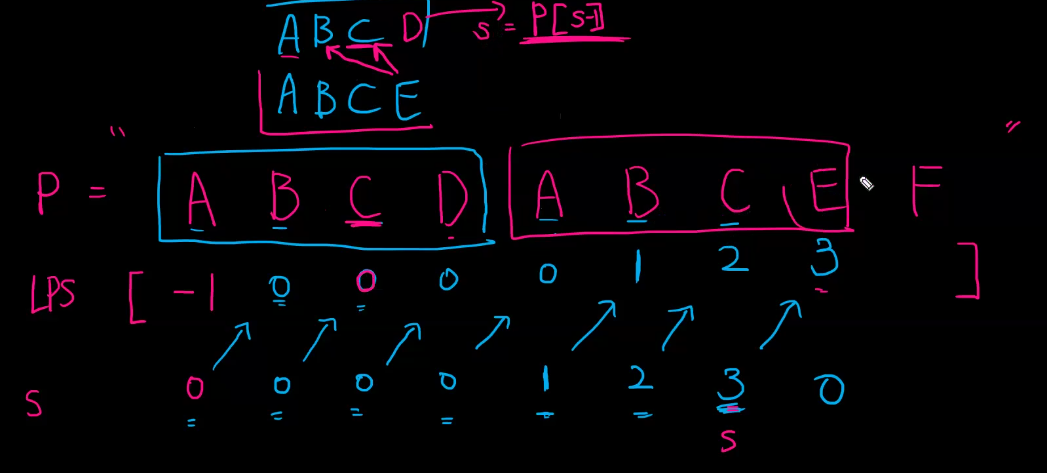 A B C D s = P[s-1]
A B C E
" "
P = A B C D A B C E F
LPS [ -1 0 0 0 0 1 2 3 ]
S 0 0 0 0 1 2 3 0
S